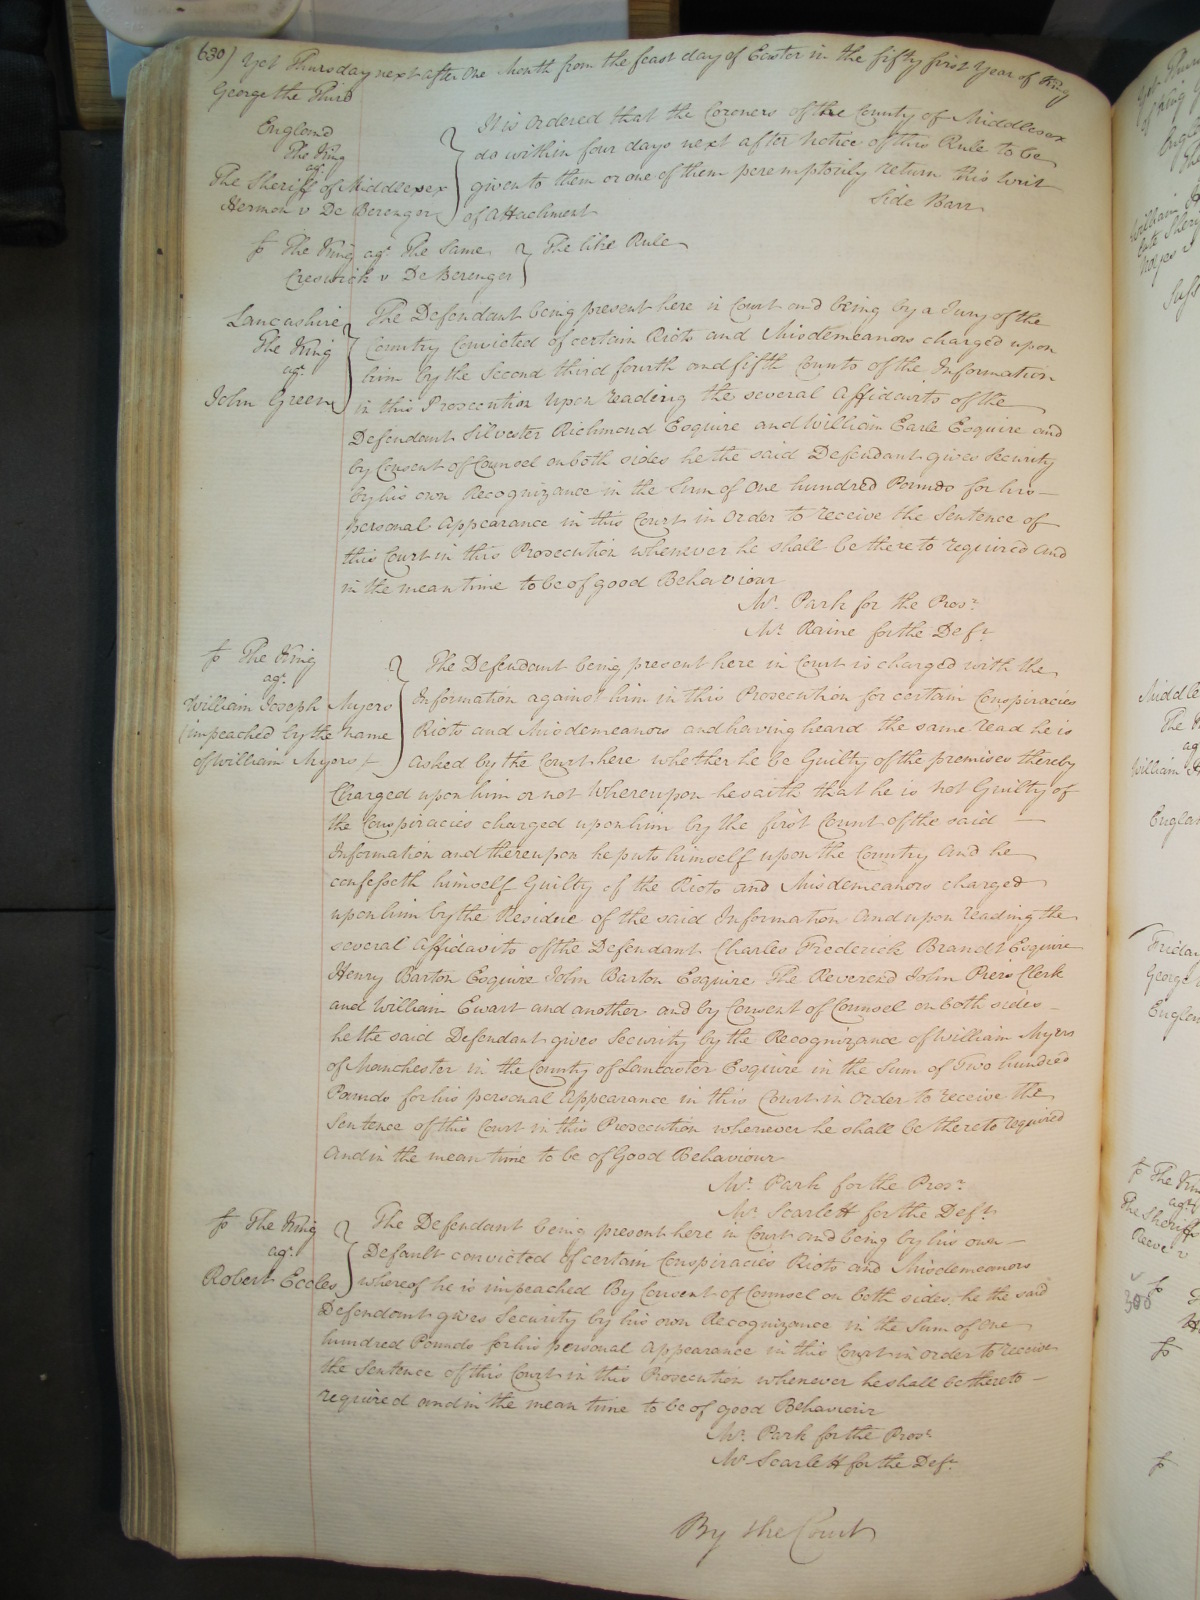 630) Yet Thursday next after one Month from the feast day of Easter in the fifty first Year of King
George the Third
England
The King
agt
The Sheriff of Middlesex
Hermon v De Berenger
It is Ordered that the Coroners of the County of Middlesex
do within four days next after Notice of this Rule to be
given to them or one of them peremptorily return this Writ
of Attachment
Side Barr
fo The King agt The Same
Creswick v De Berenger
The like Rule
Lancashire
The King
agt
John Green
The Defendant being present here in Court and being by a Jury of the
Country Convicted of certain Riots and Misdemeanors charged upon
him by the Second third fourth and fifth Counts of the Information
in this Prosecution Upon reading the several Affidavits of the
Defendant Silvester Richmond Esquire and William Earle Esquire and
by Consent of Counsel on both sides he the said Defendant gives Security
by his own Recognizance in the Sum of One hundred Pounds for his
personal Appearance in this Court in Order to receive the Sentence of
this Court in this Prosecution whenever he shall be thereto required and
in the mean time to be of good Behaviour
Mr. Park for the Prosr
Mr. Raine for the Deft
fo The King
agt
William Joseph Myers
(impeached by the name
of William Myers)
The Defendant being present here in Court is charged with the
Information against him in this Prosecution for certain Conspiracies
Riots and Misdemeanors and having heard the same read he is
asked by the Court here whether he be Guilty of the premises thereby
Charged upon him or not Whereupon he saith that he is not Guilty of
the Conspiracies charged upon him by the first Count of the said
Information and thereupon he puts himself upon the Country and he
confesseth himself Guilty of the Riots and Misdemeanors charged
upon him by the Residue of the said Information and upon reading the
several Affidavits of the Defendant Charles Frederick Brandt Esquire
Henry Barton Esquire John Barton Esquire The Reverend John Piers Clerk
and William Ewart and another and by Consent of Counsel on both sides
he the said Defendant gives Security by the Recognizance of William Myers
of Manchester in the County of Lancaster Esquire in the Sum of Two hundred
Pounds for his personal Appearance in this Court in Order to receive the
Sentence of this Court in this Prosecution whenever he shall be thereto required
and in the mean time to be of Good Behaviour
Mr. Park for the Prosr
Mr. Scarlett for the Deft
fo The King
agt
Robert Eccles
The Defendant being present here in Court and being by his own
Default convicted of certain Conspiracies Riots and Misdemeanors
whereof he is impeached By Consent of Counsel on both sides he the said
Defendant gives Security by his own Recognizance in the Sum of One
hundred Pounds for his personal Appearance in this Court in order to receive
the Sentence of this Court in this Prosecution whenever he shall be thereto
required and in the mean time to be of good Behaviour
Mr. Park for the Prosr
Mr. Scarlett for the Deft
By the Court